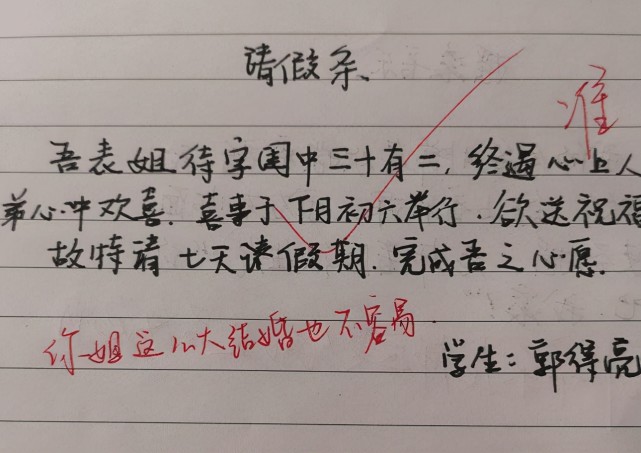 请假条
准
吾表姐待字闺中三十有二，终遇心上人
弟心中欢喜．喜事于下月初六举行．欲送祝福
故特请七天请假期．完成吾之心愿．
你姐这么大结婚也不容易．
学生：郭得亮